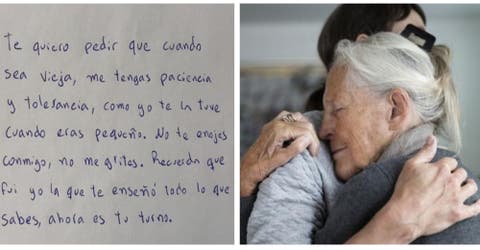 Te quiero pedir que cuando
sea vieja, me tengas paciencia
y tolerancia, como yo te la tuve
cuando eras pequeño. No te enojes
conmigo, no me grites. Recuerda que
fui yo la que te enseñó todo lo que
sabes, ahora es tu turno.